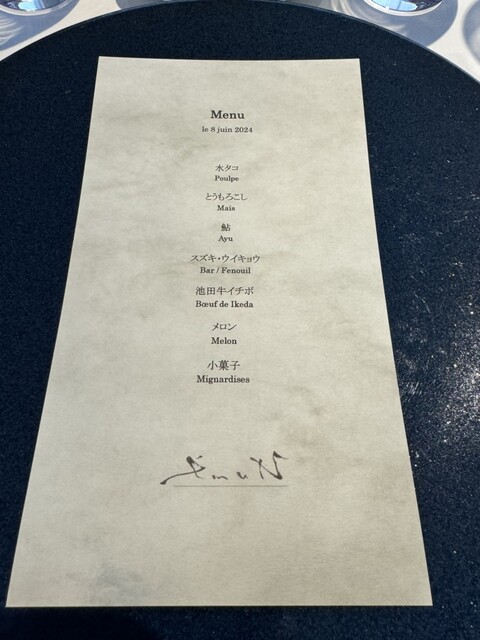 Menu
le 8 juin 2024
水タコ
Poulpe
とうもろこし
Maïs
鮎
Ayu
スズキ・ウイキョウ
Bar / Fenouil
池田牛イチボ
Bœuf de Ikeda
メロン
Melon
小菓子
Mignardises